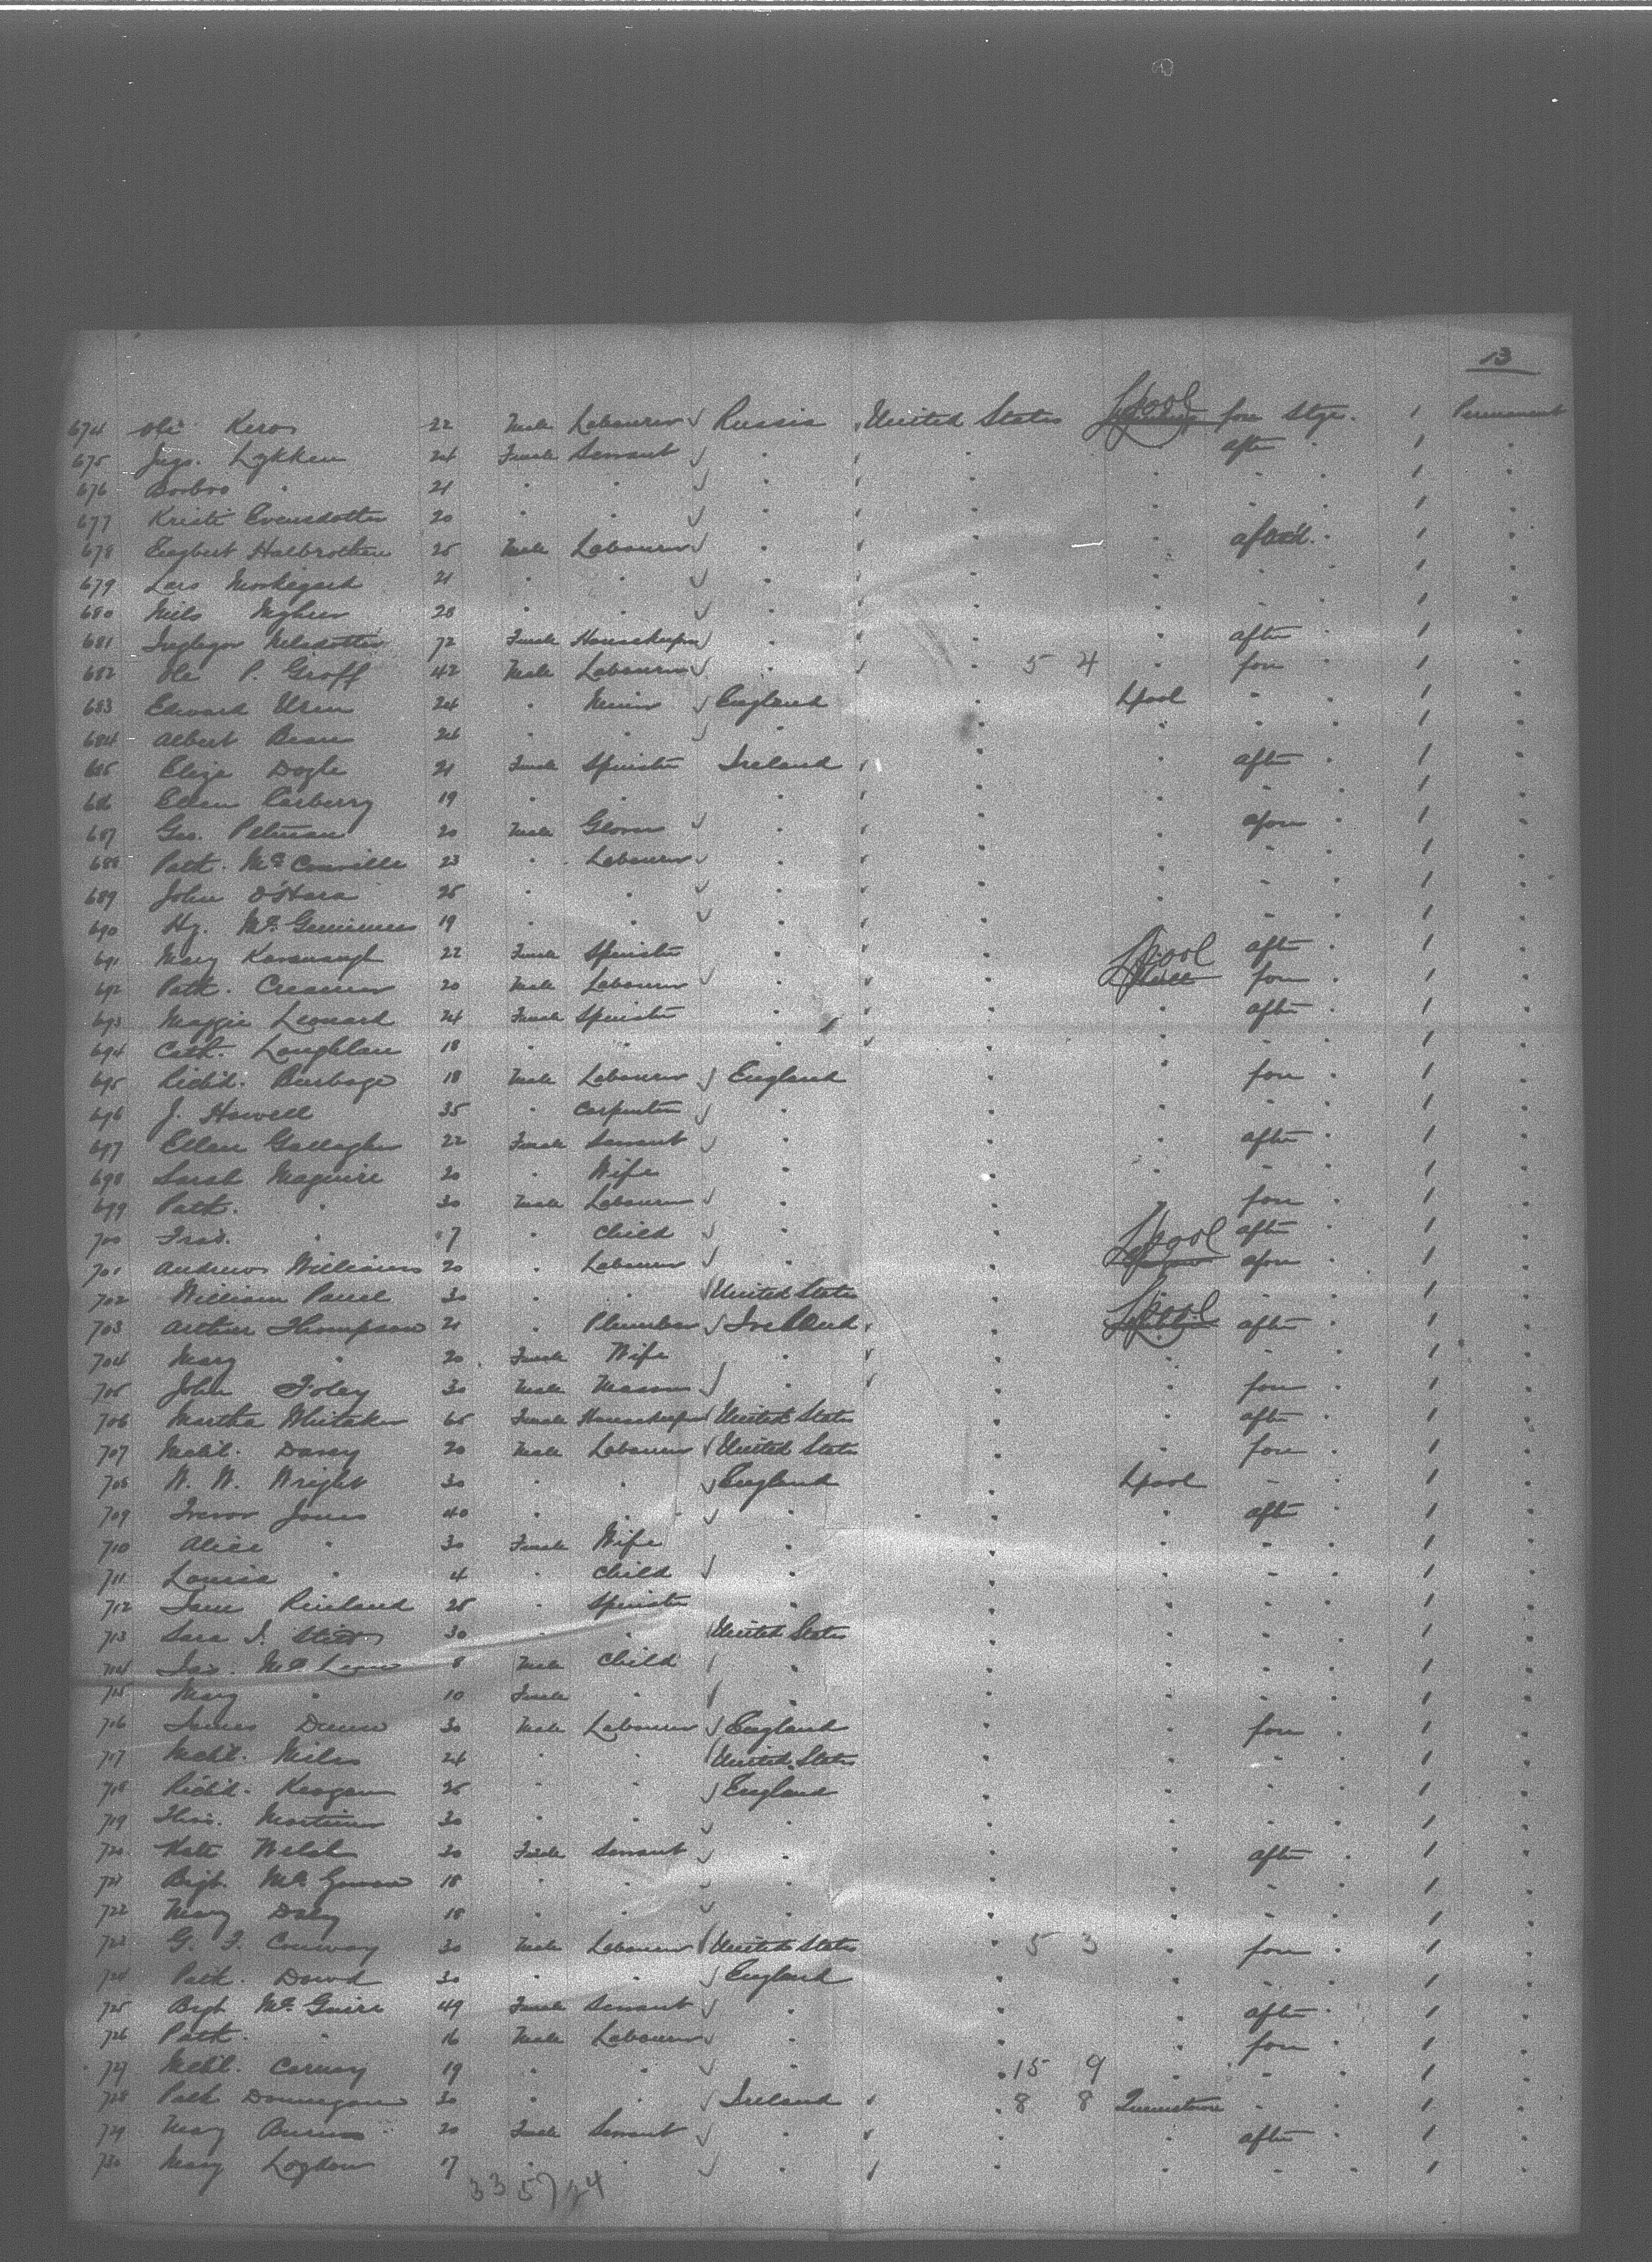 13
674 Ole Keros 22 Male Labourer √ Russia United States L'pool for Stge. 1 Permanent
675 Ingr. Lykken 24 Female Servant √ " " " after " 1 "
676 Barbro " 21 " " √ " " " " " 1 "
677 Kristi Evensdotter 20 " " √ " " " " " 1 "
678 Engbert Halbrothen 25 Male Labourer √ " " " aftxd. " 1 "
679 Lars 21 " " √ " " " " " 1 "
680 Nils 28 " " √ " " " " " 1 "
681 Nelsdotter 72 Female Housekeeper √ " " " after " 1 "
682 Ole P. Groff 42 Male Labourer √ " " 5 4 " for " 1 "
683 Edward Uren 24 " Miner √ England " Lpool " " 1 "
684 Albert Bean 26 " " √ " " " " " 1 "
685 Eliza Doyle 21 Female Spinster Ireland " " after " 1 "
686 Ellen Carberry 19 " " " " " " " 1 "
687 Geo. Pelman 20 Male Glover √ " " " afore " 1 "
688 Patk. McConville 23 " Labourer √ " " " " " 1 "
689 John O'Hara 25 " " √ " " " " " 1 "
690 Hy. 19 " " √ " " " " " 1 "
691 Mary Kavanaugh 22 Female Spinster " " " after " 1 "
692 Patk. Creamer 20 Male Labourer √ " " L'pool for " 1 "
693 Maggie Leonard 24 Female Spinster " " " after " 1 "
694 Cath. Loughlan 18 " " " " " " " 1 "
695 Richd. Burbage 18 Male Labourer √ England " " for " 1 "
696 J. Howell 35 " Carpenter √ " " " " " 1 "
697 Ellen Gallagher 22 Female Servant √ " " " after " 1 "
698 Sarah Maguire 20 " Wife " " " " " 1 "
699 Patk. " 30 Male Labourer √ " " " for " 1 "
700 Frad. " 7 " Child √ " " " after " 1 "
701 Andrew Williams 20 " Labourer √ " " L'pool afore " 1 "
702 William Paul 30 " " √ United States " " " " 1 "
703 Arthur Thompson 21 " Plumber √ Ireland " L'pool after " 1 "
704 Mary " 20 Female Wife " " " " " 1 "
705 John Foley 30 Male Mason √ " " " for " 1 "
706 Martha Whitaker 65 Female Housekeeper √ United States " " after " 1 "
707 Michl. Davey 20 Male Labourer √ United States " " for " 1 "
708 W. W. Wright 30 " " √ England " Lpool " " 1 "
709 Trevor Jones 40 " " √ " " " after " 1 "
710 Alice " 30 Female Wife " " " " " 1 "
711 Louisa " 4 " Child √ " " " " " 1 "
712 Jane 25 " Spinster " " " " " 1 "
713 Sara J. 30 " " √ United States " " " " 1 "
714 Jas. McLean 8 Male Child √ " " " " " 1 "
715 Mary " 10 Female " √ " " " " " 1 "
716 James Dunn 30 Male Labourer √ England " " for " 1 "
717 Michl. Miles 24 " " √ United States " " " " 1 "
718 Richd. Keagan 25 " " √ England " " " " 1 "
719 Thos. Mortimer 30 " " √ " " " " " 1 "
720 Kate Welch 30 Female Servant √ " " " after " 1 "
721 Bigt. McGowan 18 " " √ " " " " " 1 "
722 Mary Daly 18 " " √ " " " " " 1 "
723 G. F. Conway 30 Male Labourer √ United States " 5 3 " for " 1 "
724 Patk. Dowd 30 " " √ England " " " " 1 "
725 Bgt McGuire 49 Female Servant √ " " " after " 1 "
726 Patk. " 16 Male Labourer √ " " " for " 1 "
727 Michl. Carney 19 " " √ " " 15 9 " " " 1 "
728 Patk Dounegan 30 " " √ Ireland " 8 8 Queenstown " " 1 "
729 Mary Burns 20 Female Servant √ " " " after " 1 "
730 Mary Logdon 17 " " √ " " " " " 1 "
33 57 24